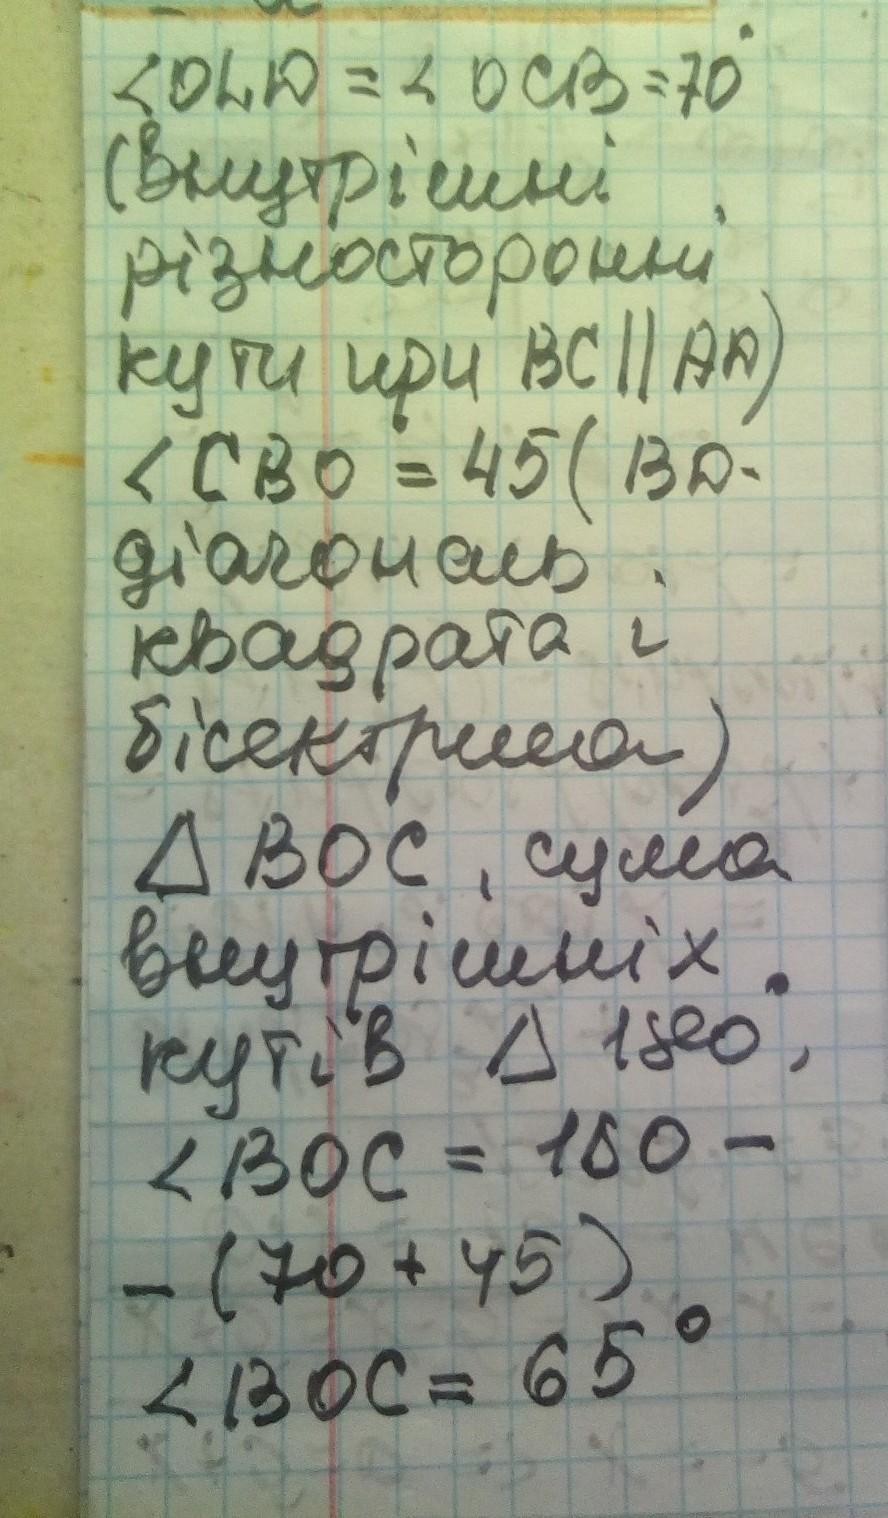 <OLD = < OCB = 70°
(внутрішні
різносторонні
кути при BC || AD)
<CBO = 45 ( BD-
діагональ
квадрата і
бісектриса)
Δ BOC, сума
внутрішніх
кутів Δ 180°,
<BOC = 180 -
- (70 + 45)
<BOC = 65°